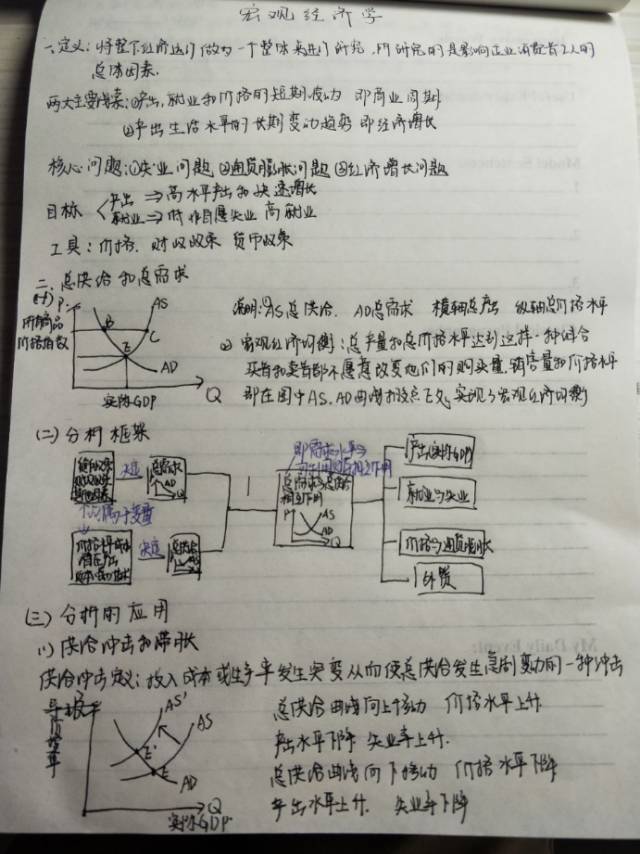 宏观经济学
一、定义:将整个经济运行做为一个整体来进行研究,所研究的是影响企业消费者工人的
总体因素.
两大主要线索:①产出,就业和价格的短期波动 即商业周期
②产出生活水平的长期变动趋势 即经济增长
核心问题:①失业问题 ②通货膨胀问题 ③经济增长问题
目标
产出 ⇒ 高水平产出和快速增长
就业 ⇒ 低非自愿失业 高就业
工具: 价格. 财政政策 货币政策
二. 总供给和总需求
(一) P
所有商品
价格指数
AS
B
C
E
AD
Q
实际GDP
说明:①AS总供给. AD总需求 横轴总产出 纵轴总价格水平
② 宏观经济均衡:总产量和总价格水平达到这样一种组合
买者和卖者都不愿意改变他们的购买量,销售量和价格水平
即在图中AS.AD曲线相交点E处,实现了宏观经济均衡
(二) 分析框架
货币政策
财政政策
决定
总需求
AD
Q
即需求水平与
总需求与总供给
相互作用
P
AS
AD
Q
产出(实际GDP)
就业与失业
价格与通货膨胀
外贸
价格与成本
潜在产出
决定
总供给
(三) 分析的应用
(1) 供给冲击和滞胀
供给冲击定义:投入成本或生产率发生突变从而使总供给发生急剧变动的一种冲击
AS'
AS
E'
E
AD
Q
实际GDP
总供给曲线向上移动 价格水平上升
产出水平下降 失业率上升.
总供给曲线向下移动 价格水平下降
产出水平上升. 失业率下降